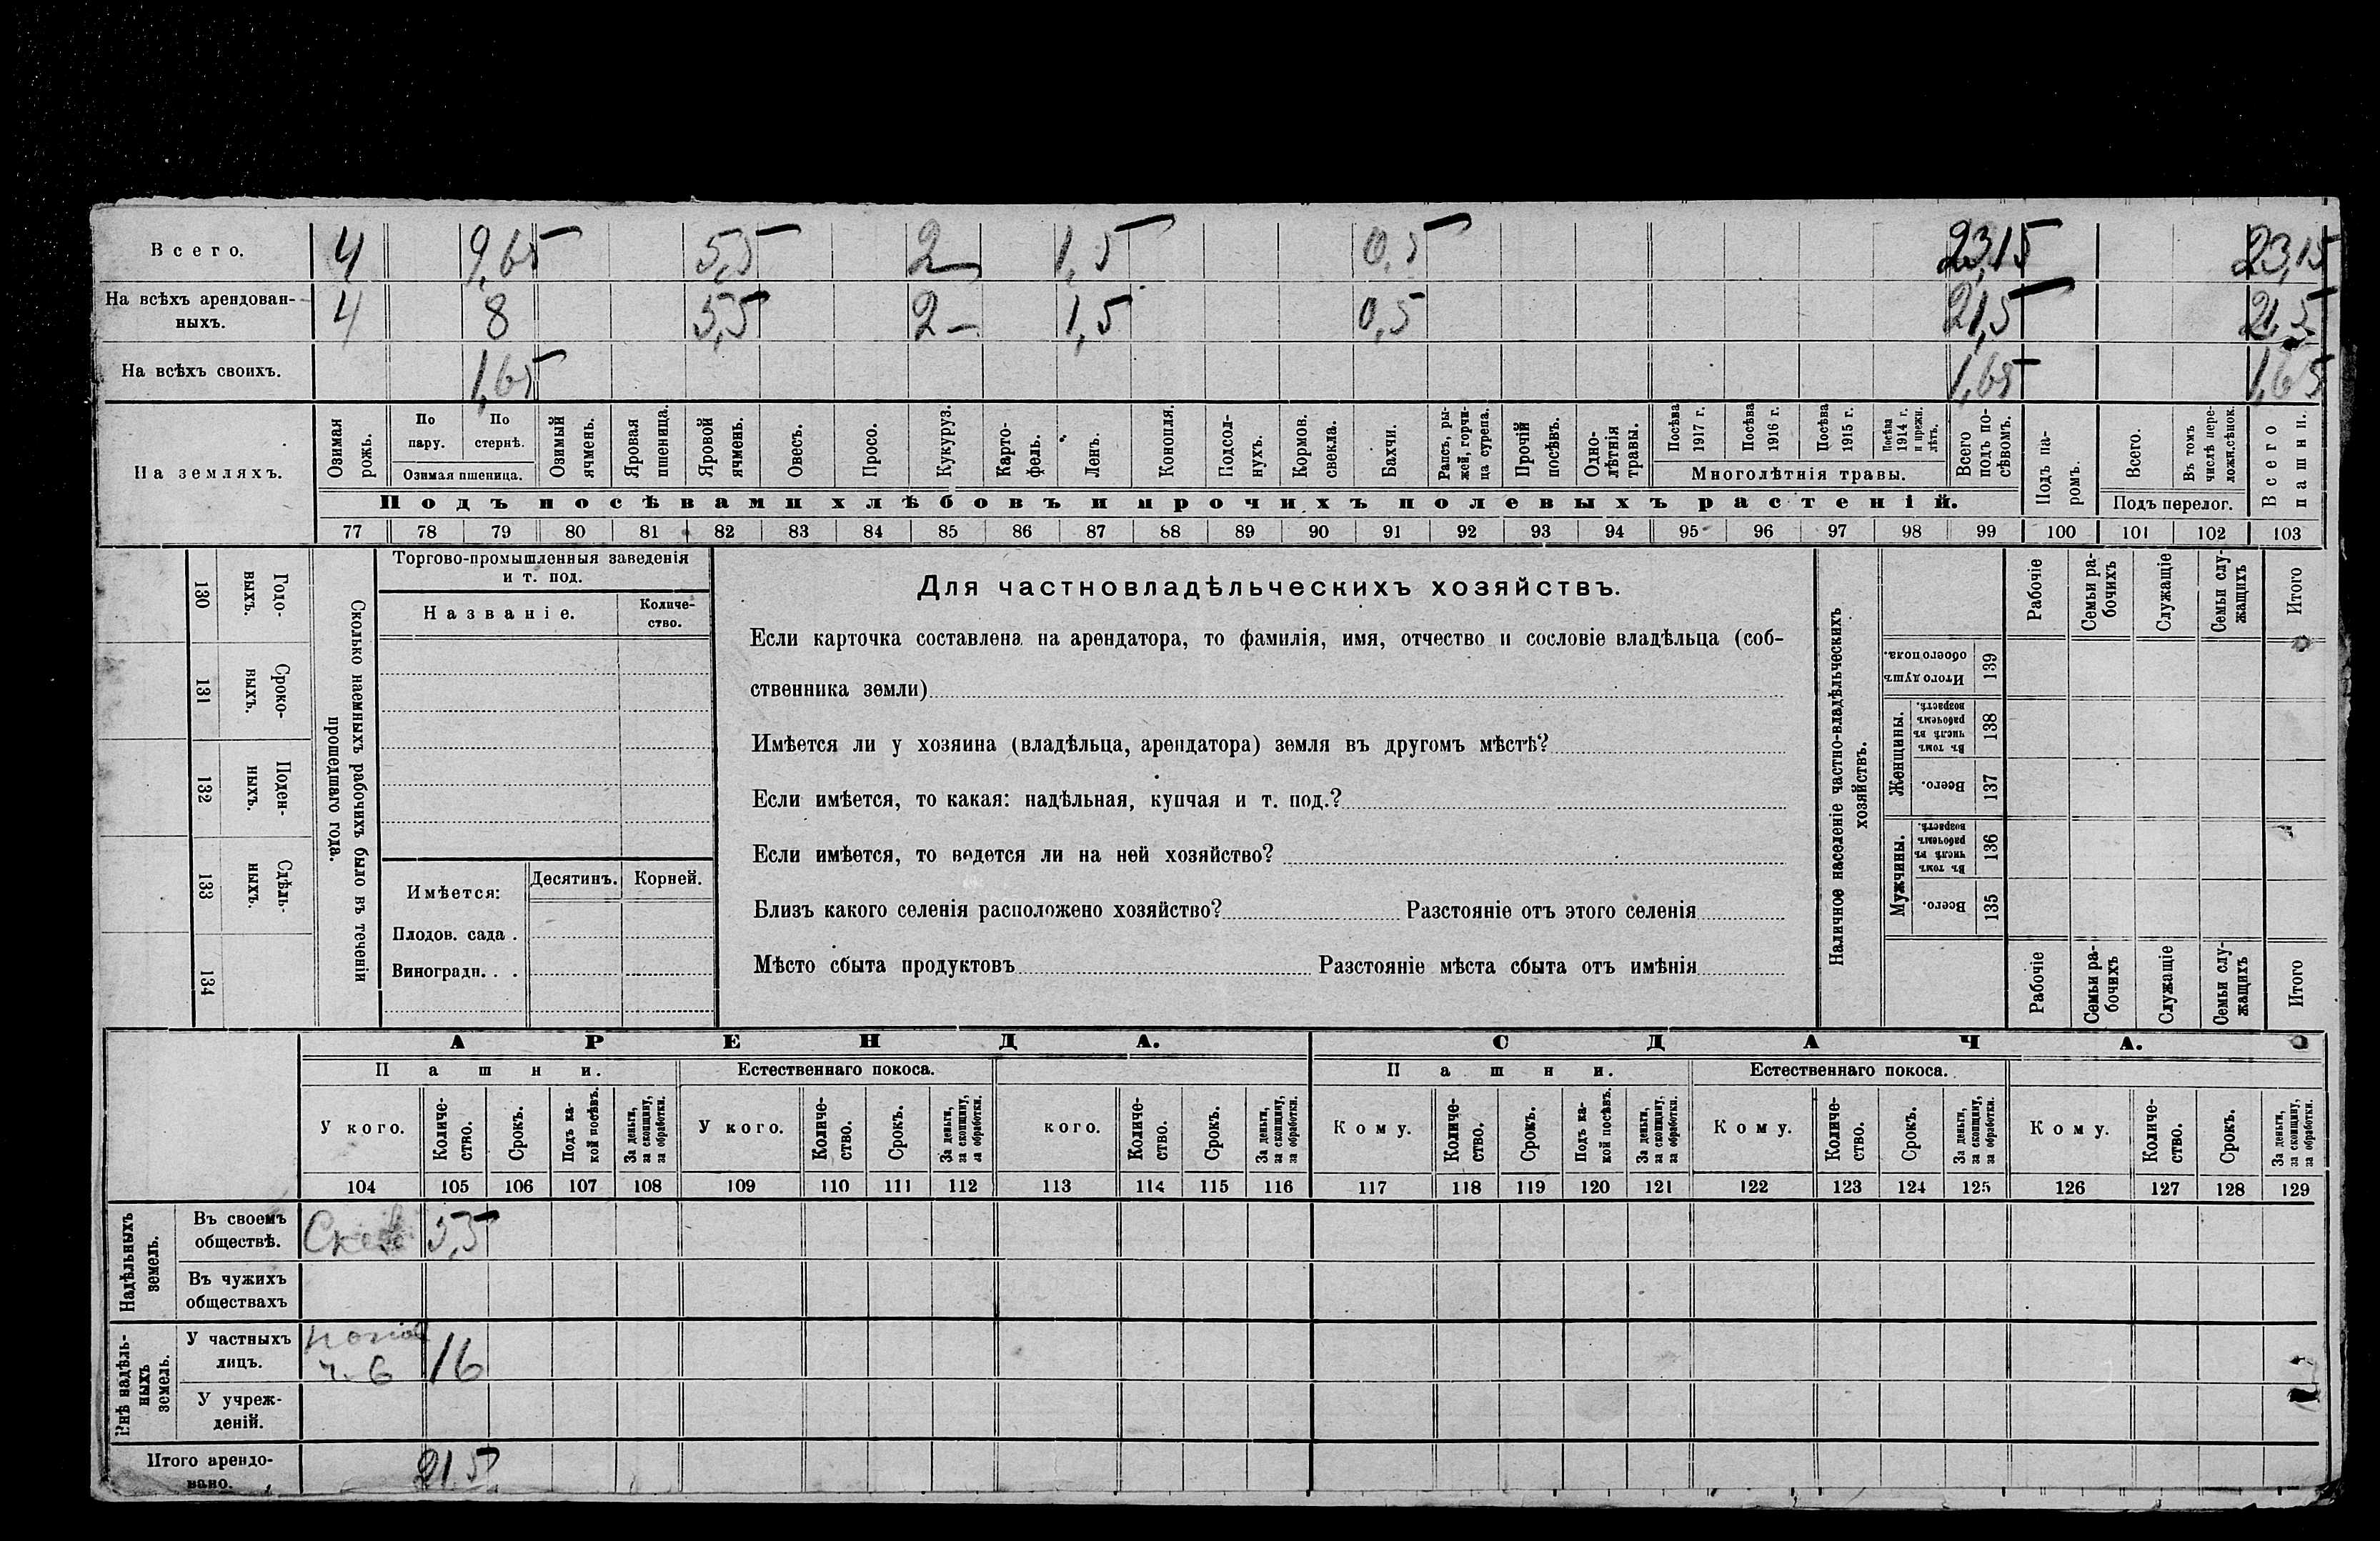 Всего. 4 9,65 5,5 2 1,5 0,5 23,15 23,15
На всѣхъ арендован-
ныхъ. 4 8 5,5 2 1,5 0,5 21,5 21,5
На всѣхъ своихъ. 1,65 1,65 1,65
На земляхъ.
Озимая рожь.
По пару.
По стернѣ.
Озимая пшеница.
Озимый ячмень.
Яровая пшеница.
Яровой ячмень.
Овесъ.
Просо.
Кукуруз.
Карто-
фель.
Ленъ.
Конопля.
Подсол-
нухъ.
Кормов. свекла.
Бахчи.
Рапсъ, ры-
жей, горчи-
ца сурепа.
Прочій посѣвъ.
Одно-
лѣтнія травы.
Посѣва 1917 г.
Посѣва 1916 г.
Посѣва 1915 г.
Посѣва 1914 г. и прежн. лѣтъ.
Многолѣтнія травы.
Всего подъ по-
сѣвомъ.
Подъ посѣвами хлѣбовъ и прочихъ полевыхъ растеній.
Подъ па-
ромъ.
Всего.
Въ томъ числѣ пере-
ложн.сѣнок.
Подъ перелог.
Всего пашни.
77 78 79 80 81 82 83 84 85 86 87 88 89 90 91 92 93 94 95 96 97 98 99 100 101 102 103
130 Годо-
выхъ.
131 Сроко-
выхъ.
132 Поден-
ныхъ.
133 Сдѣль-
ныхъ.
134
Сколько наемныхъ рабочихъ было въ теченіи
прошедшаго года.
Торгово-промышленныя заведенія
и т. под.
Названіе.
Количе-
ство.
Имѣется:
Десятинъ. Корней.
Плодов. сада .
Виноградн. . .
Для частновладѣльческихъ хозяйствъ.
Если карточка составлена на арендатора, то фамилія, имя, отчество и сословіе владѣльца (соб-
ственника земли)
Имѣется ли у хозяина (владѣльца, арендатора) земля въ другомъ мѣстѣ?
Если имѣется, то какая: надѣльная, купчая и т. под.?
Если имѣется, то ведется ли на ней хозяйство?
Близъ какого селенія расположено хозяйство? Разстояніе отъ этого селенія
Мѣсто сбыта продуктовъ Разстояніе мѣста сбыта отъ имѣнія
Наличное населеніе частно-владѣльческихъ
хозяйствъ.
Рабочіе
Семьи ра-
бочихъ
Служащіе
Семьи слу-
жащихъ
Итого
Итого душъ
обоего пола. 139
Женщины.
Въ томъ числѣ въ рабочемъ возрастѣ. 138
Всего. 137
Мужчины.
Въ томъ числѣ въ рабочемъ возрастѣ. 136
Всего. 135
Рабочіе
Семьи ра-
бочихъ
Служащіе
Семьи слу-
жащихъ
Итого
АРЕНДА. СДАЧА.
Пашни. Естественнаго покоса. Пашни. Естественнаго покоса.
У кого.
Количе-
ство.
Срокъ.
Подъ ка-
кой посѣвъ.
За деньги,
за скопщину,
за обработки.
У кого.
Количе-
ство.
Срокъ.
За деньги,
за скопщину,
за обработки.
кого.
Количе-
ство.
Срокъ.
За деньги,
за скопщину,
за обработки.
Кому.
Количе-
ство.
Срокъ.
Подъ ка-
кой посѣвъ.
За деньги,
за скопщину,
за обработки.
Кому.
Количе-
ство.
Срокъ.
За деньги,
за скопщину,
за обработки.
Кому.
Количе-
ство.
Срокъ.
За деньги,
за скопщину,
за обработки.
104 105 106 107 108 109 110 111 112 113 114 115 116 117 118 119 120 121 122 123 124 125 126 127 128 129
Надѣльныхъ
земель.
Въ своемъ
обществѣ. 5,5
Въ чужихъ
обществахъ
Внѣ надѣль-
ныхъ
земель.
У частныхъ
лицъ. 16
У учреж-
деній.
Итого арендо-
вано. 21,5